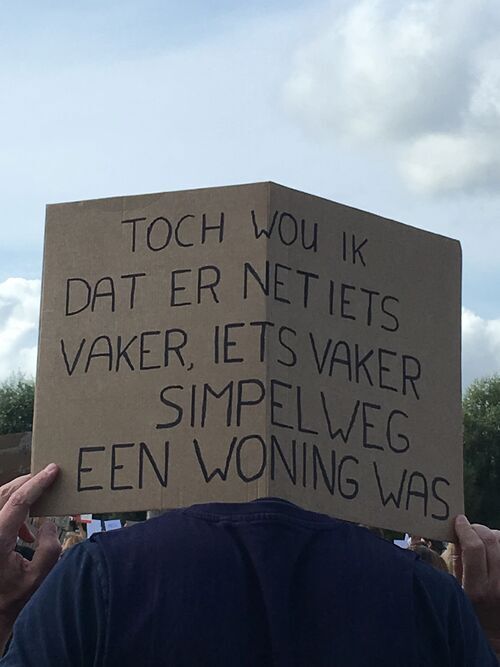 TOCH WOU IK
DAT ER NET IETS
VAKER, IETS VAKER
SIMPELWEG
EEN WONING WAS